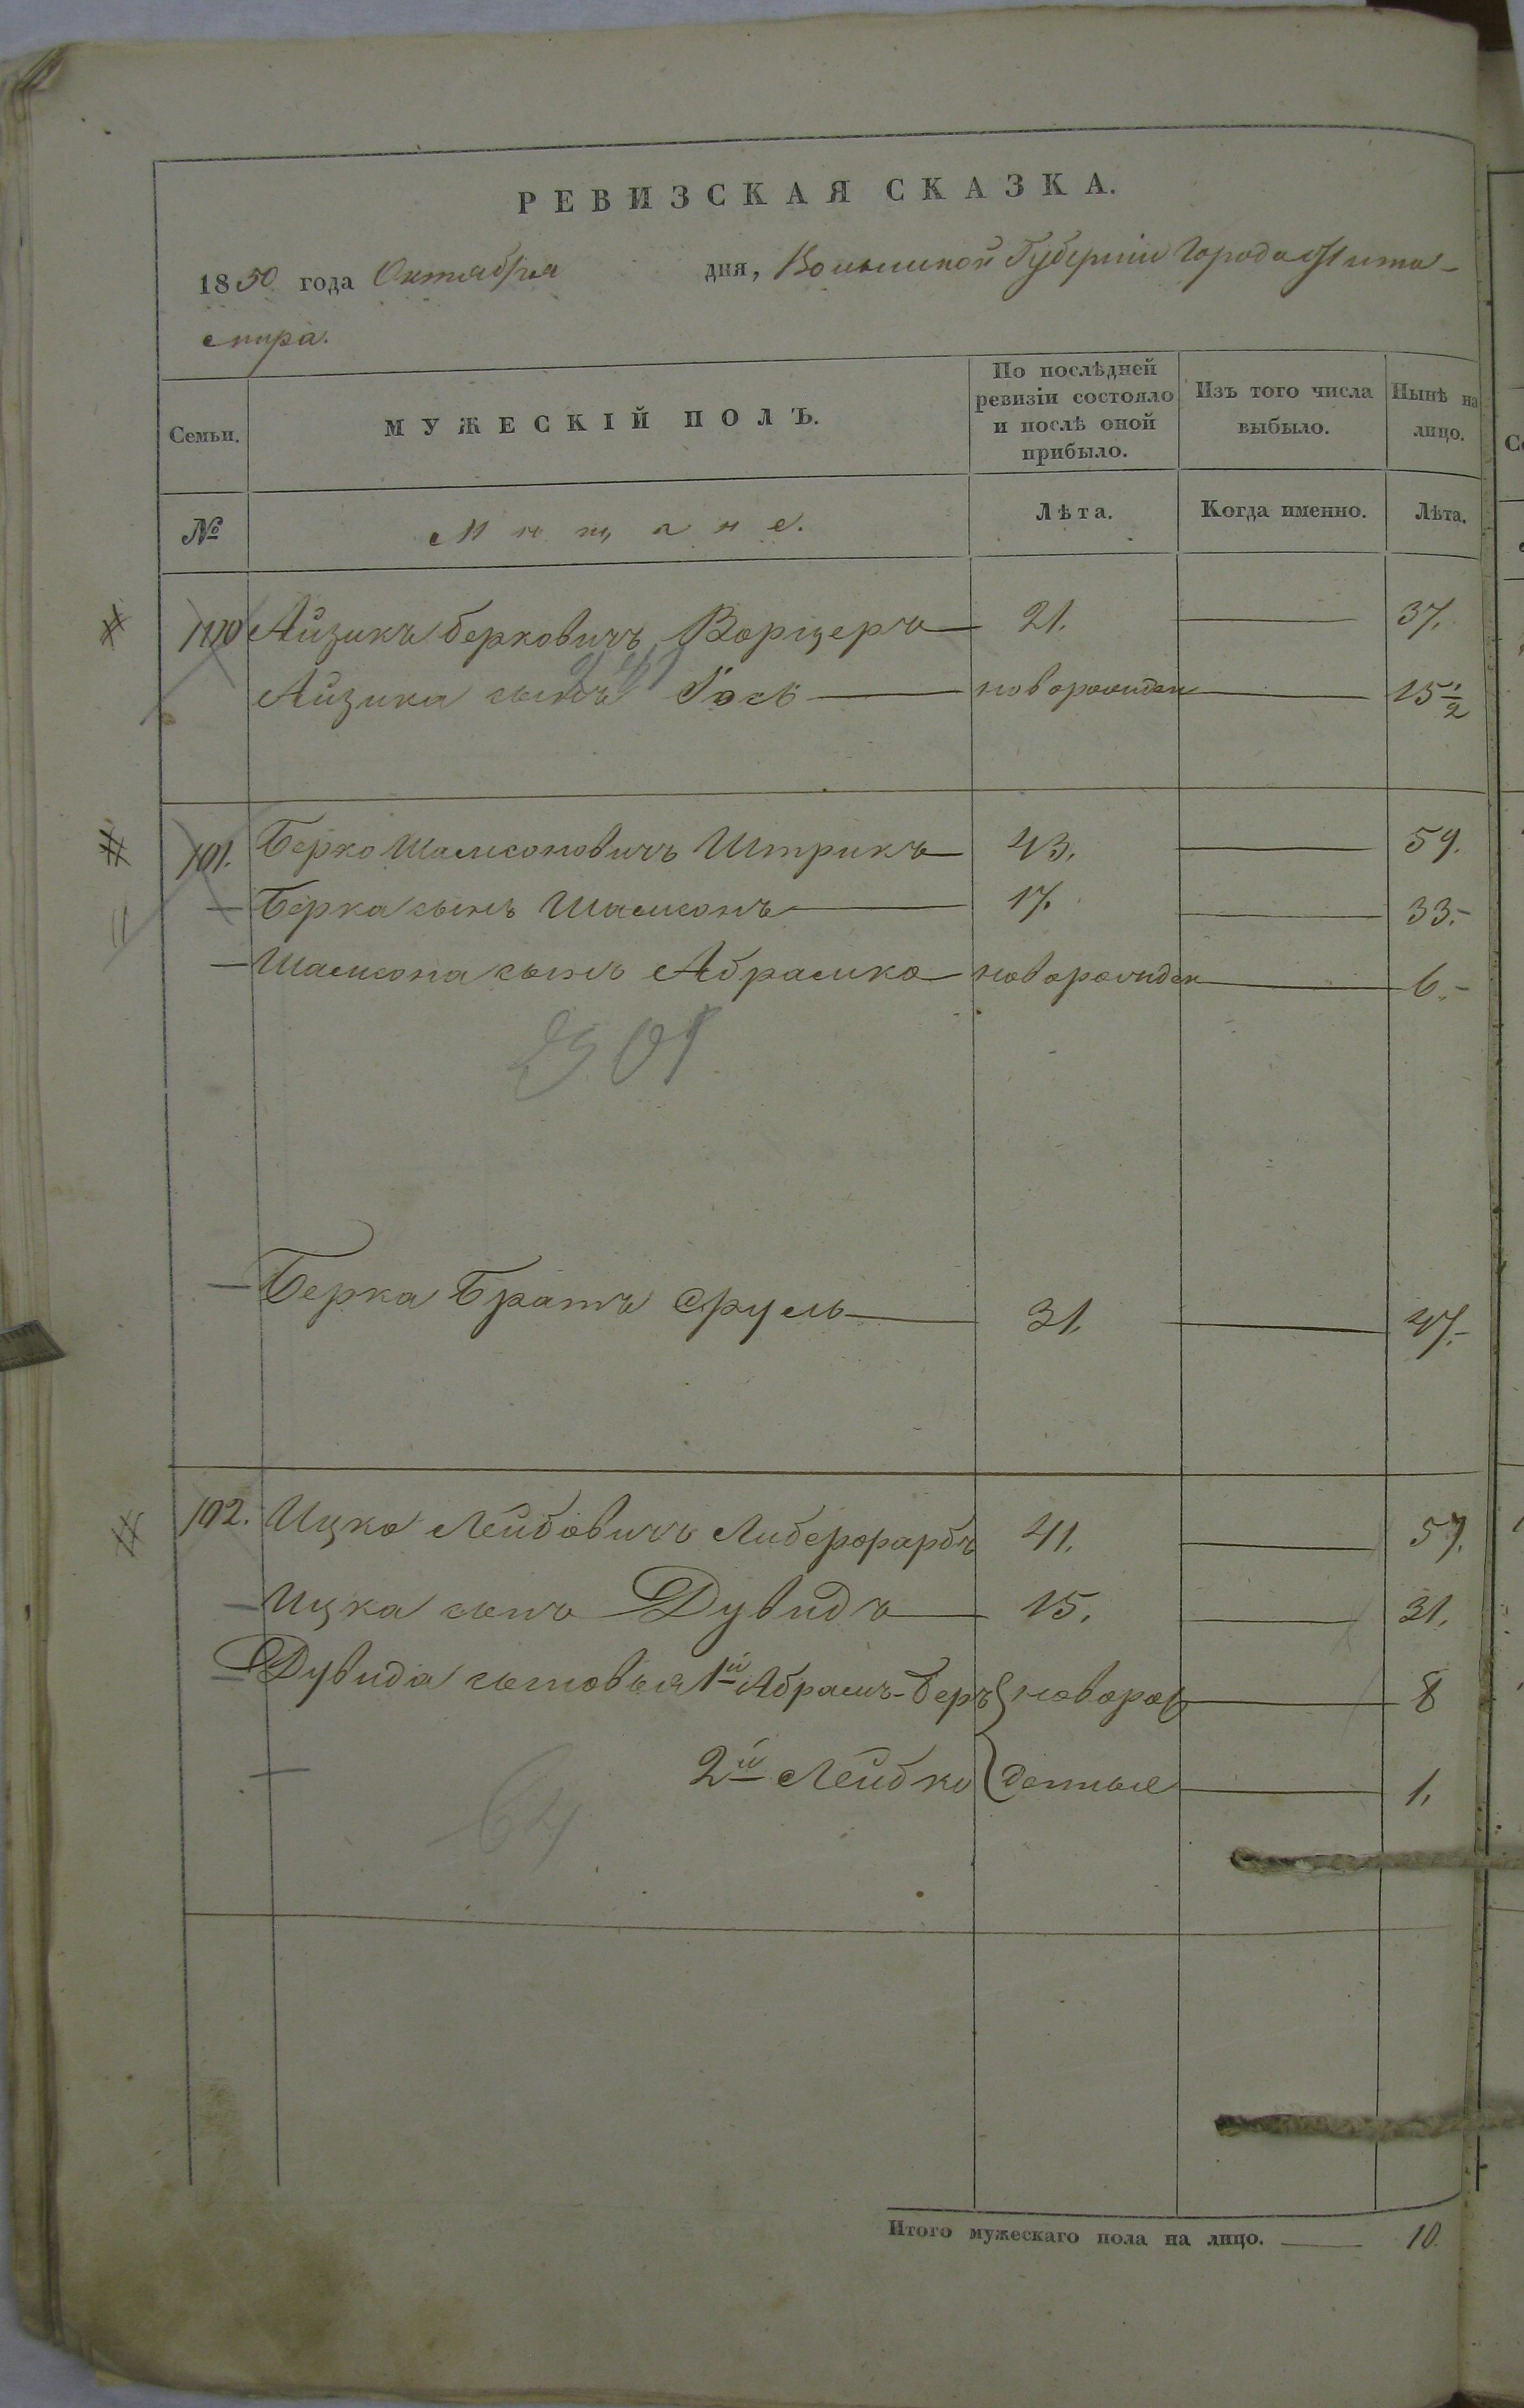 РЕВИЗСКАЯ СКАЗКА.
1850 года Октября дня, Волынской Губерніи Города Жито-
мира.
Семьи. МУЖЕСКІЙ ПОЛЪ. По послѣдней ревизіи состояло и послѣ оной прибыло. Изъ того числа выбыло. Нынѣ на лицо.
№ Мѣщане. Лѣта. Когда именно. Лѣта.
100 Айзикъ Берковичъ Ворцеръ 21. 37.
Айзика сынъ Іось новорожден 15 1/2
101. Берко Шамсоновичъ Штрикъ 43. 59.
Берка сынъ Шамсонъ 17. 33.
Шамсона сынъ Абрамко новорожден 6.
Берка Братъ Сруль 31. 47.
102. Ицко Лейбовичъ Либерфарбъ 41. 57.
Ицка сынъ Дувидъ 15. 31.
Дувида сыновья 1й Абрамъ-Беръ новорож 8
2й Лейбко денные 1.
64
Итого мужескаго пола на лицо. 10.